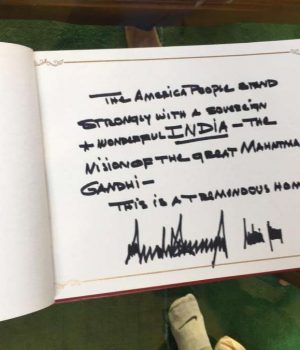 THE AMERICA PEOPLE STAND
STRONGLY WITH A SOVEREIGN
+ WONDERFUL INDIA – THE
VISION OF THE GREAT MAHATMA
GANDHI –
THIS IS A TREMENDOUS HON